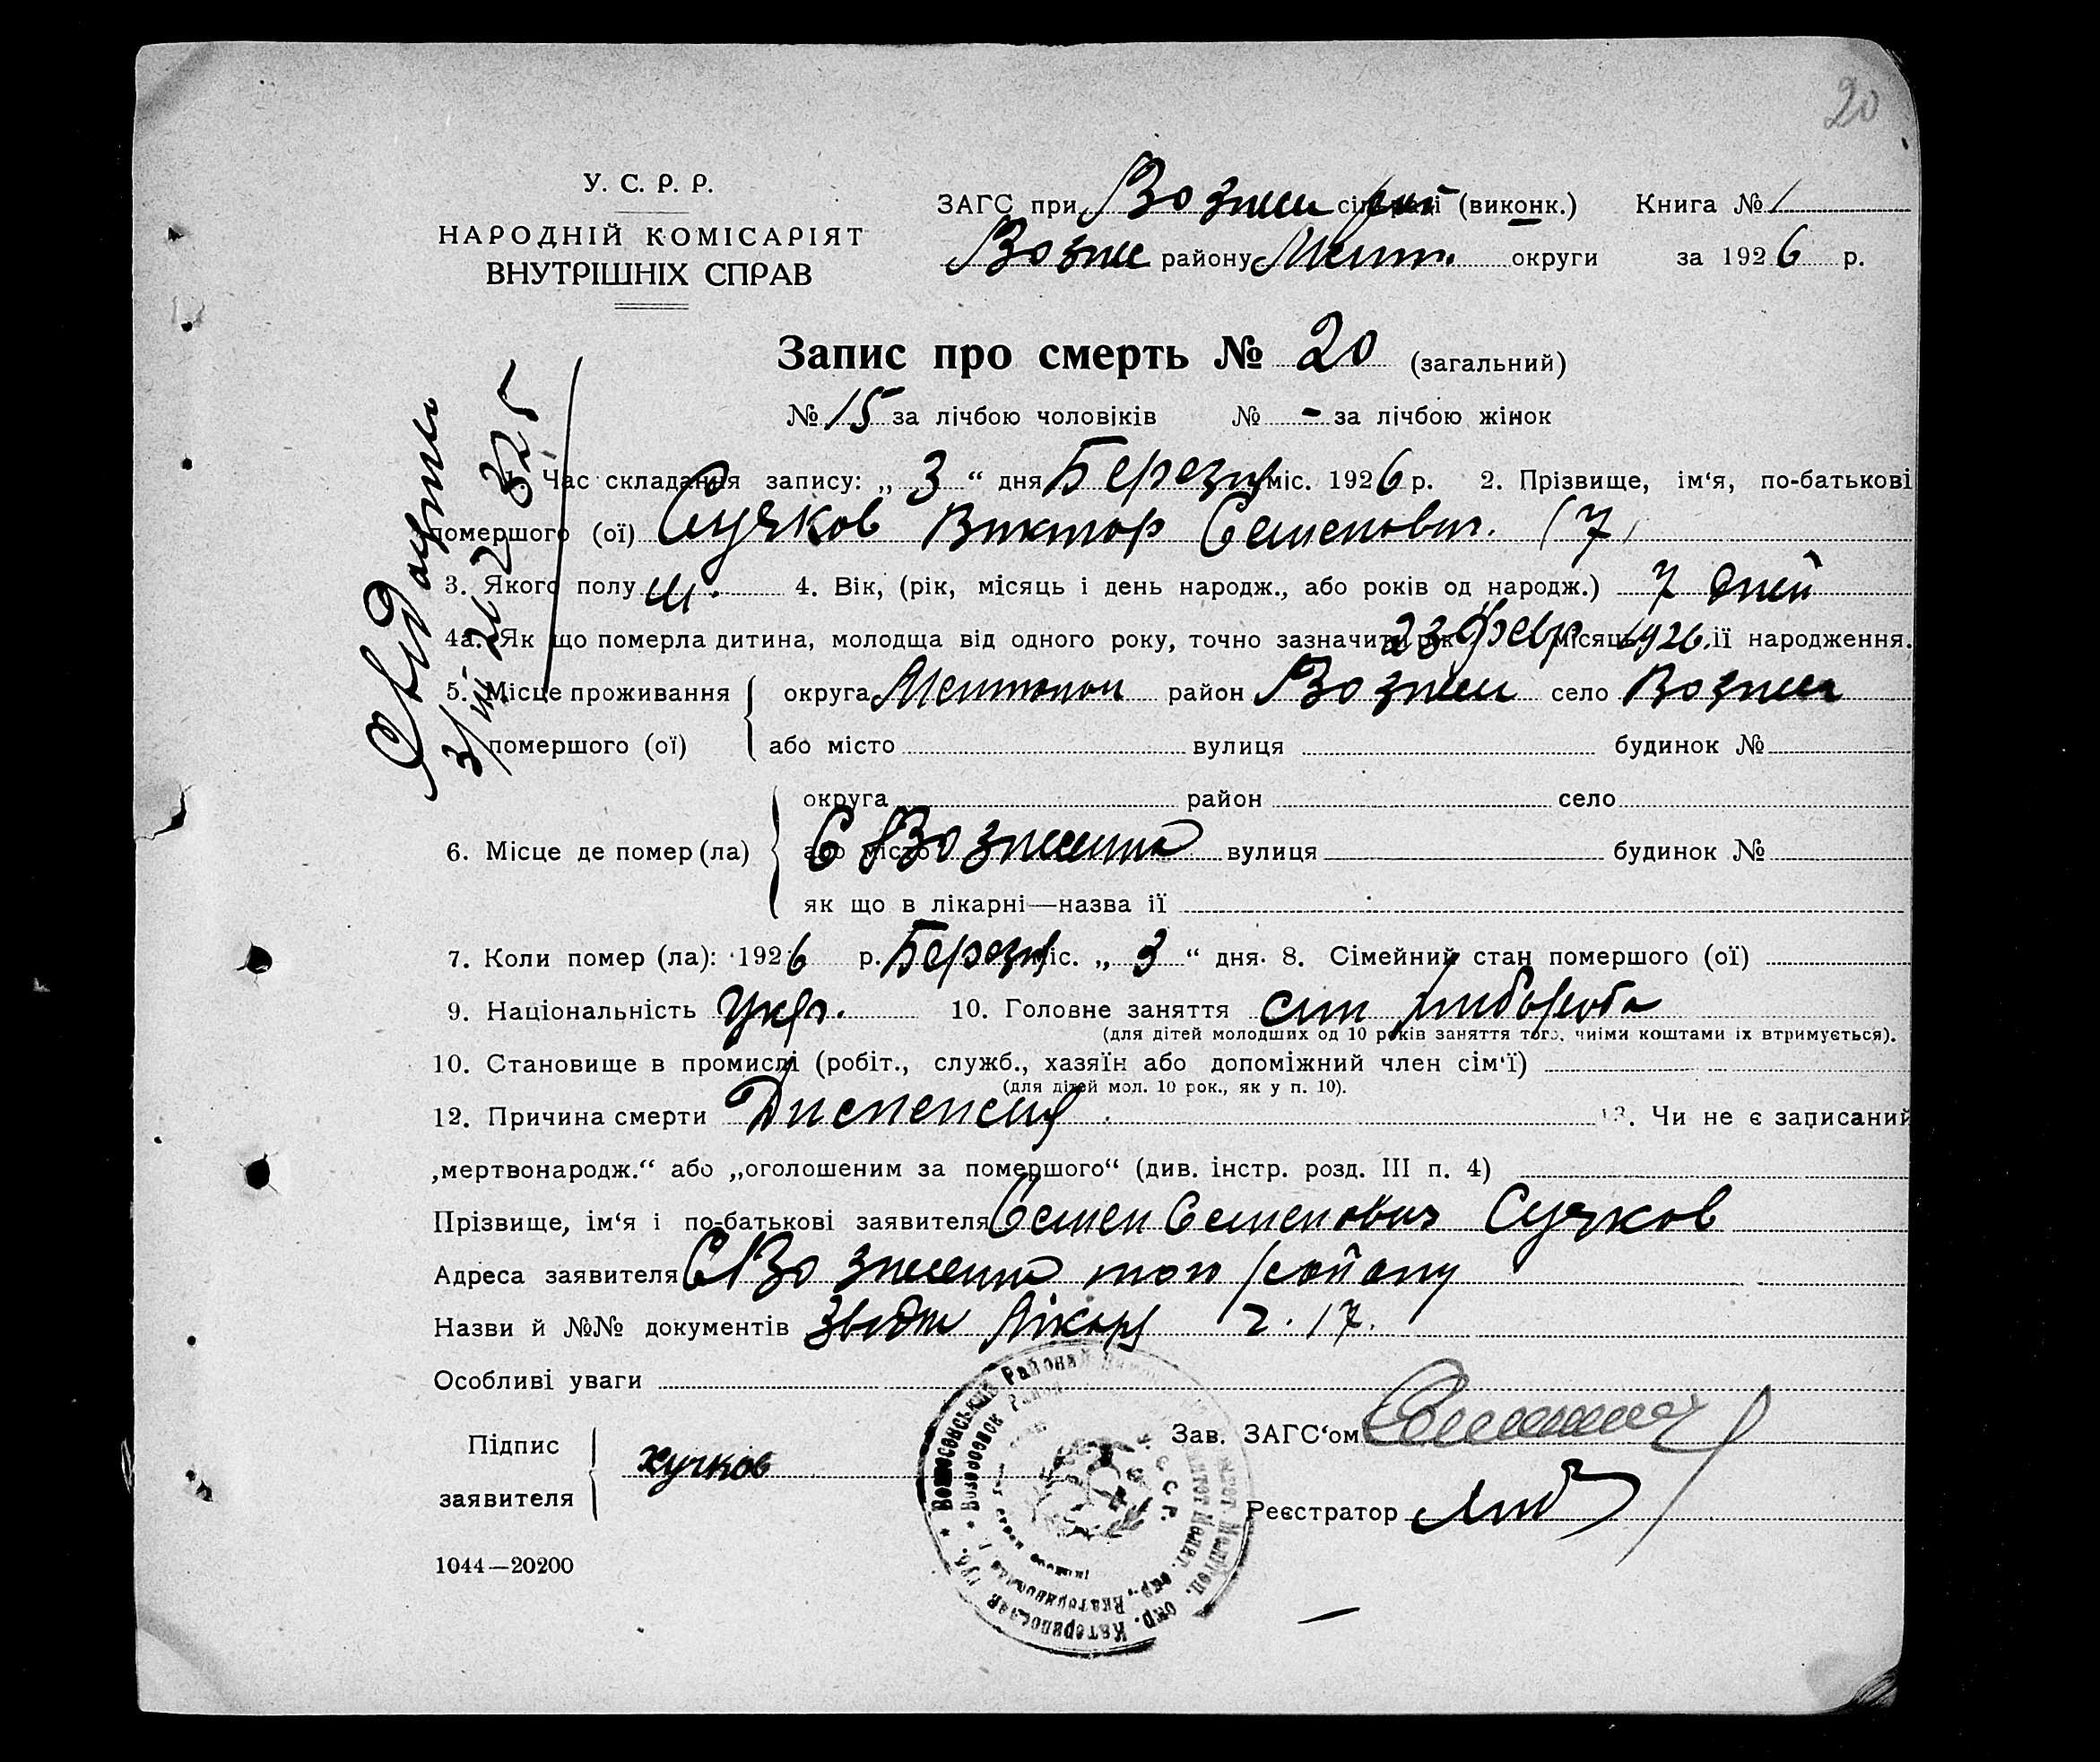 20
У. С. Р. Р.
НАРОДНІЙ КОМІСАРІЯТ
ВНУТРІШНІХ СПРАВ
ЗАГС при Возне (виконк.) Книга № 1
Возне району Меліт. округи за 1926 р.
Запис про смерть № 20 (загальний)
№ 15 за лічбою чоловіків № - за лічбою жінок
1. Час складання запису: „ 3 “ дня Березня міс. 1926 р. 2. Прізвище, ім‘я, по-батькові
помершого (ої) Сучков Виктор Семенович. (7)
3. Якого полу ч. 4. Вік, (рік, місяць і день народж., або років од народж.) 7 дней
4а. Як що померла дитина, молодща від одного року, точно зазначити рік 23 февр місяць 1926. ії народження.
5. Місце проживання округа район село
помершого (ої) або місто вулиця будинок №
округа район село
6. Місце де помер (ла) або місто С Вознесенка вулиця будинок №
як що в лікарні—назва ії
7. Коли помер (ла): 1926 р. Березня міс. „ 3 “ дня. 8. Сімейний стан помершого (ої)
9. Національність Укр. 10. Головне заняття син хлібороба
(для дітей молодших од 10 років заняття того, чиїми коштами їх втримується).
10. Становище в промислі (робіт., служб., хазяїн або допоміжний член сім‘ї)
(для дітей мол. 10 рок., як у п. 10).
12. Причина смерти Диспепсия 13. Чи не є записаний
„мертвонародж.“ або „оголошеним за помершого“ (див. інстр. розд. III п. 4)
Прізвище, ім‘я і по-батькові заявителя Семен Семенович Сучков
Адреса заявителя С Вознесенка того району
Назви й №№ документів Лікаря 17.
Особливі уваги
Підпис
заявителя
Сучков
Зав. ЗАГС‘ом
Реєстратор
1044—20200